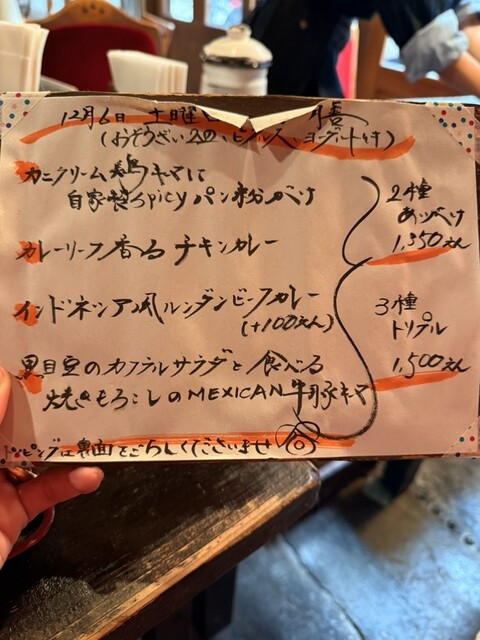 12月6日 土曜日 膳
(おそうざい2コ、ピクルス、ヨーグルト付)
カニクリーム鶏キマに
自家製Spicyパン粉がけ
カレーリーフ香るチキンカレー
インドネシア風ルンダンビーフカレー
(+100えん)
黒目豆のカクテルサラダと食べる
焼きもろこしのMEXICAN牛豚キマ
2種
あいがけ
1,350えん
3種
トリプル
1,500えん
トッピングは裏面をごらんくださいませ